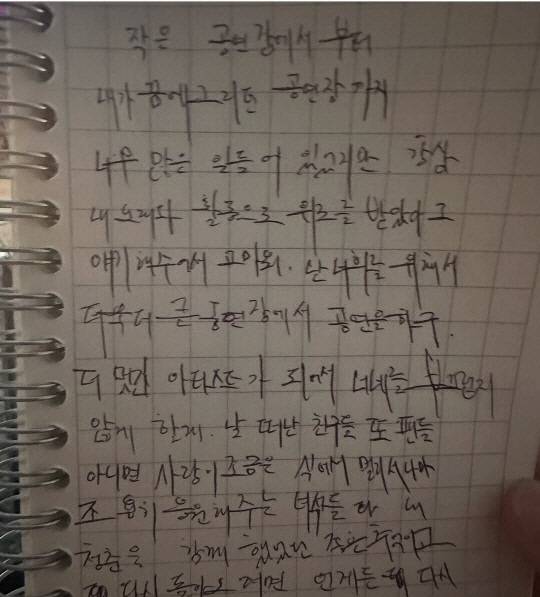 작은 공연장에서 부터
내가 꿈에그리던 공연장 까지
너무 많은 일들이 있었지만 항상
내 노래와 활동으로 위로를 받았다고
얘기해주어서 고마워. 난 너희를 위해서
더욱더 큰 공연장에서 공연을하구.
더 멋진 아티스트가 되어서 너네를 부끄럽지
않게 할게. 날 떠난 친구들 또 팬들
아니면 사랑이 조금은 식어서 멀리서나마
조용히 응원해주는 녀석들 다 내
청춘을 함께 했었던 좋은추억이고
다시 돌아오려면 언제든 다시